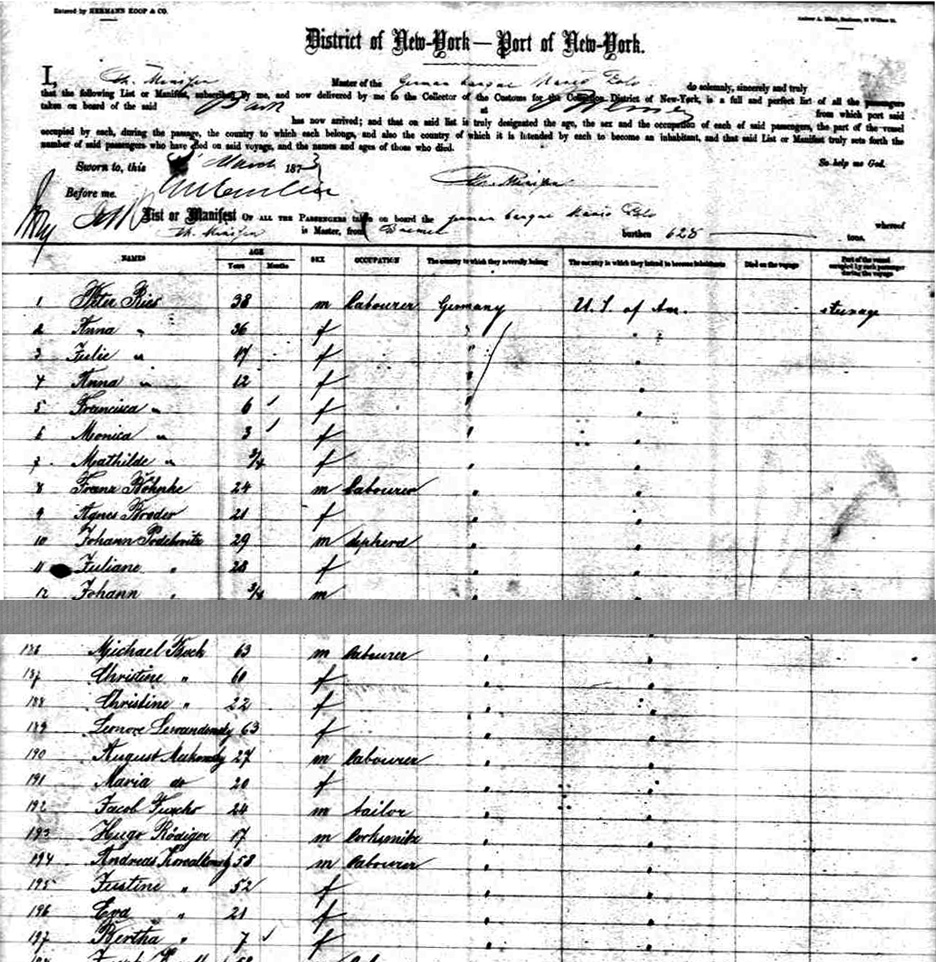 Entered by HERMANN KOOP & CO.
District of New-York — Port of New-York.
I, Master of the German barque Marco Polo do solemnly, sincerely and truly
that the following List or Manifest, subscribed by me, and now delivered by me to the Collector of the Customs for the Collection District of New-York, is a full and perfect list of all the passengers
taken on board of the said Bark at from which port said
has now arrived; and that on said list is truly designated the age, the sex and the occupation of each of said passengers, the part of the vessel
occupied by each, during the passage, the country to which each belongs, and also the country of which it is intended by each to become an inhabitant, and that said List or Manifest truly sets forth the
number of said passengers who have died on said voyage, and the names and ages of those who died.
So help me God.
Sworn to, this March 1873
Before me.
List or Manifest OF ALL THE PASSENGERS taken on board the german barque Marco Polo whereof
is Master, from Bremen burthen 625 tons.
NAMES AGE Years Months SEX OCCUPATION The country to which they severally belong The country in which they intend to become inhabitants Died on the voyage Part of the vessel occupied by each passenger during the voyage
1 Peter Ries 38 m Labourer Germany U. S. of Am. steerage
2 Anna " 36 f " "
3 Julie " 17 f " "
4 Anna " 12 f " "
5 Francisca " 6 f " "
6 Monica " 3 f " "
7 Mathilde " f " "
8 Franz Böhnke 24 m Labourer " "
9 Agnes 21 f " "
10 Johann 29 m " "
11 Juliane " 28 f " "
12 Johann " m " "
186 Michael 63 m Labourer " "
187 Christine " 60 f " "
188 Christine " 22 f " "
189 Leonore 63 f " "
190 August 27 m Labourer " "
191 Maria do 20 f " "
192 Jacob 24 m tailor " "
193 Hugo Rödiger 17 m " "
194 Andreas 58 m Labourer " "
195 Justine " 52 f " "
196 Eva " 21 f " "
197 Bertha " 7 f " "